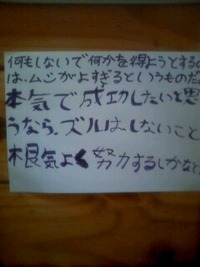 何もしないで何かを得ようとするの
は、ムシがよすぎるというものだ
本気で成功したいと思
うなら、ズルはしないこと
根気よく努力するしかない